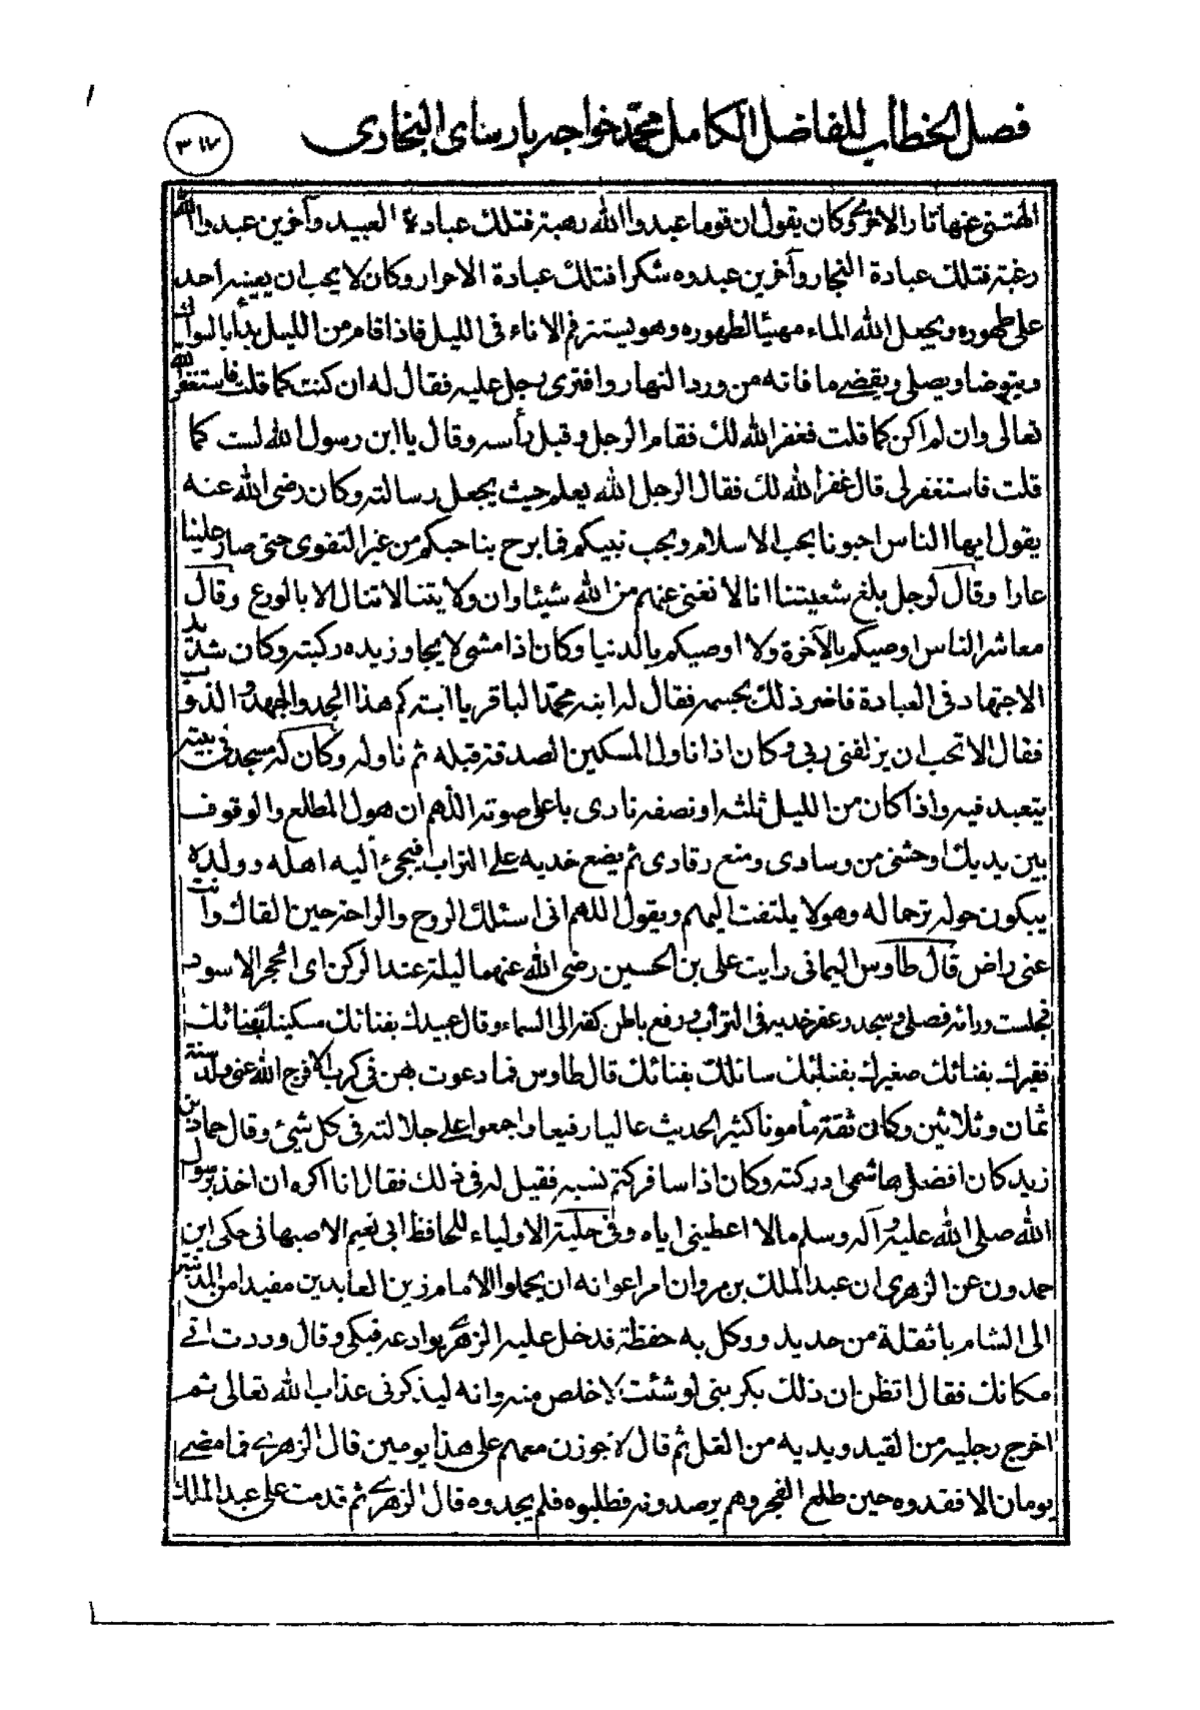 فصل الخطاب للفاضل الكامل محمد خواجه پارساى البخارى
٣١٧
الهتنى عنها نار الاخرى وكان يقول ان قوما عبدوا الله رهبة فتلك عبادة العبيد وآخرين عبدوا الله
رغبة فتلك عبادة التجار وآخرين عبدوه شكرا فتلك عبادة الاحرار وكان لا يحب ان يعينه احد
على طهوره ويجعل الله الماء مهيئا لطهوره وهو يستتر فم الاناء فى الليل فاذا قام من الليل بدأ بالسواك
ويتوضا ويصلى ويقضے ما فاته من ورد النهار وافترى رجل عليه فقال له ان كنت كما قلت فاستغفر الله
تعالى وان لم اكن كما قلت فغفر الله لك فقام الرجل وقبل رأسه وقال يا ابن رسول الله لست كما
قلت فاستغفر لى قال غفر الله لك فقال الرجل الله يعلم حيث يجعل رسالته وكان رضى الله عنه
يقول ايها الناس احبونا بحب الاسلام وبحب نبيكم فما برح بنا حبكم من غير التقوى حتى صار علينا
عارا وقال لرجل بلغ شعيتنا انا لا نغنى عنهم من الله شيئا وان ولايتنا لا تنال الا بالورع وقال
معاشر الناس اوصيكم بالآخرة ولا اوصيكم بالدنيا وكان اذا مشى لا يجاوز يده ركبته وكان شديد
الاجتهاد فى العبادة فاضر ذلك بجسمه فقال له ابنه محمد الباقر يا ابت كم هذا الجد والجهد والذوب
فقال الا تحب ان يزلفنى ربى وكان اذا ناول المسكين الصدقة قبله ثم ناوله وكان له مسجد فى بيته
يتعبد فيه واذا كان من الليل ثلثه او نصفه نادى باعلى صوته اللهم ان هول المطلع والوقوف
بين يديك اوحشنى من وسادى ومنع رقادى ثم يضع خديه على التراب فيجئ اليه اهله وولده
يبكون حوله ترحما له وهو لا يلتفت اليهم ويقول اللهم انى اسئلك الروح والراحة حين القاك وانت
عنى راض قال طاوس اليمانى رايت على بن الحسين رضى الله عنهما ليلة عند الركن اى الحجر الاسود
فجلست ورائه فصلى وسجد وعفر خديه فى التراب ورفع باطن كفه الى السماء وقال عبيدك بفنائك مسكينك بفنائك
فقيرك بفنائك صغيرك بفنائك سائلك بفنائك قال طاوس فما دعوت بهن فى كرب الا فرج الله عنى ولد سنة
ثمان وثلاثين وكان ثقة مأمونا كثير الحديث عاليا رفيعا واجمعوا على جلالته فى كل شيئ وقال حماد بن
زيد كان افضل هاشمى ادركته وكان اذا سافر كتم نسبه فقيل له فى ذلك فقال انا اكره ان اخذ برسول
الله صلى الله عليه وآله وسلم مالا اعطينى اياه وفى حلية الاولياء للحافظ ابى نعيم الاصبهانى حكى ابن
حمدون عن الزهرى ان عبد الملك بن مروان امر اعوانه ان يحملوا الامام زين العابدين مقيدا من المدينة
الى الشام باثقلة من حديد ووكل به حفظة فدخل عليه الزهرى يوادعه فبكى وقال وددت انے
مكانك فقال اتظن ان ذلك يكربنى لو شئت لا خلص منه وانه ليذكرنى عذاب الله تعالى ثم
اخرج رجليه من القيد ويديه من الغل ثم قال لا جوزن معهم على هذا يومين قال الزهرے فما مضے
يومان الا فقدوه حين طلع الفجر وهم يرصدونه فطلبوه فلم يجدوه قال الزهرے ثم قدمت على عبد الملك